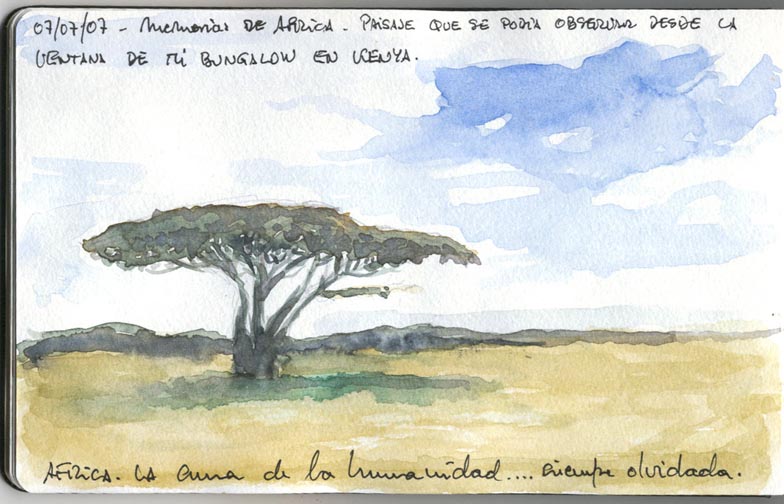 07/07/07 - Memorias DE AFRICA. PAISAJE QUE SE PODIA OBSERVAR DESDE LA
VENTANA DE MI BUNGALOW EN KENYA.
AFRICA. LA cuna de la humanidad.... siempre olvidada.